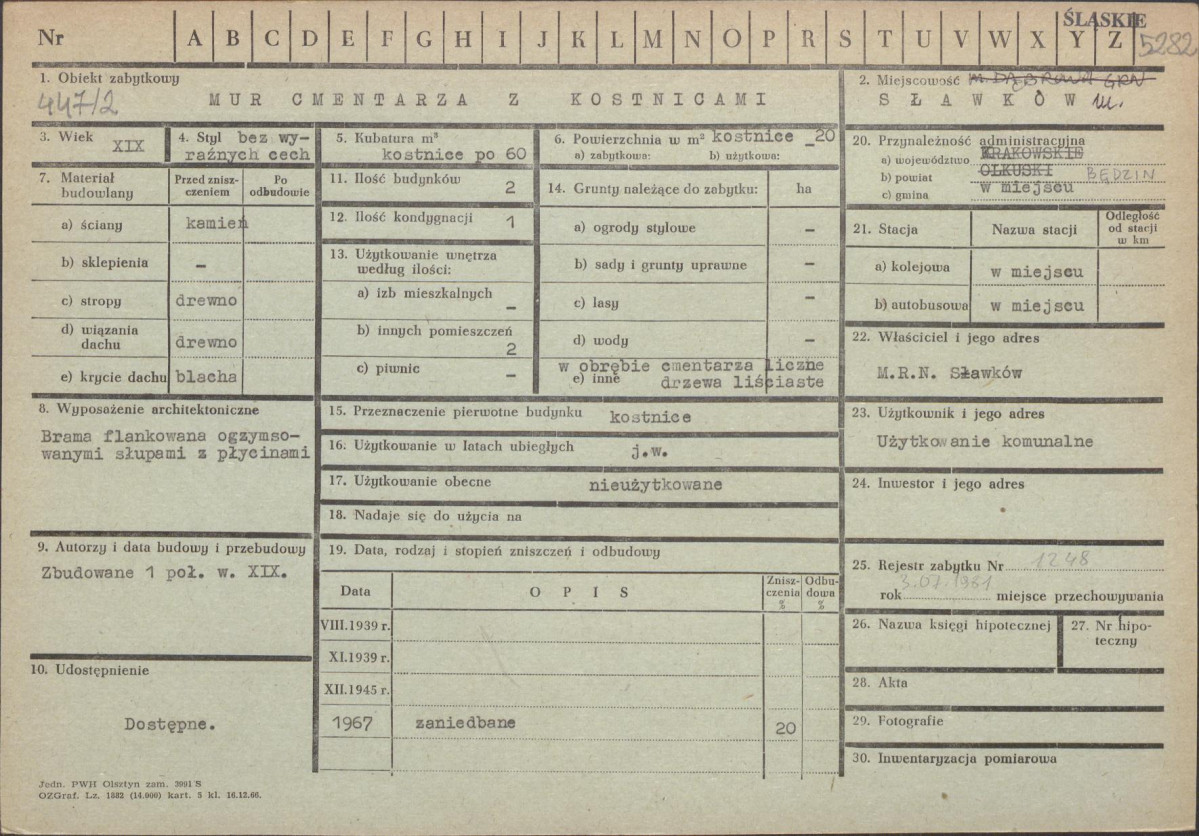 ŚLĄSKIE
Nr A B C D E F G H I J K L M N O P R S T U V W X Y Z 5282
1. Obiekt zabytkowy
447/2
MUR CMENTARZA Z KOSTNICAMI
2. Miejscowość m. DĄBROWA GRN
SŁAWKÓW m.
3. Wiek XIX
4. Styl bez wy-
raźnych cech
5. Kubatura m³
kostnice po 60
6. Powierzchnia w m² kostnice 20
a) zabytkowa: b) użytkowa:
7. Materiał
budowlany
Przed znisz-
czeniem
Po
odbudowie
a) ściany kamień
b) sklepienia –
c) stropy drewno
d) wiązania
dachu drewno
e) krycie dachu blacha
8. Wyposażenie architektoniczne
Brama flankowana ogzymso-
wanymi słupami z płycinami
9. Autorzy i data budowy i przebudowy
Zbudowane 1 poł. w. XIX.
10. Udostępnienie
Dostępne.
11. Ilość budynków 2
12. Ilość kondygnacji 1
13. Użytkowanie wnętrza
według ilości:
a) izb mieszkalnych –
b) innych pomieszczeń
2
c) piwnic –
14. Grunty należące do zabytku: ha
a) ogrody stylowe –
b) sady i grunty uprawne –
c) lasy –
d) wody –
w obrębie cmentarza liczne
e) inne drzewa liściaste
15. Przeznaczenie pierwotne budynku kostnice
16. Użytkowanie w latach ubiegłych j.w.
17. Użytkowanie obecne nieużytkowane
18. Nadaje się do użycia na
19. Data, rodzaj i stopień zniszczeń i odbudowy
Data OPIS
Znisz-
czenia
%
Odbu-
dowa
%
VIII.1939 r.
XI.1939 r.
XII.1945 r.
1967 zaniedbane 20
20. Przynależność administracyjna
a) województwo KRAKOWSKIE
b) powiat OLKUSKI BĘDZIN
c) gmina w miejscu
21. Stacja Nazwa stacji
Odległość
od stacji
w km
a) kolejowa w miejscu
b) autobusowa w miejscu
22. Właściciel i jego adres
M.R.N. Sławków
23. Użytkownik i jego adres
Użytkowanie komunalne
24. Inwestor i jego adres
25. Rejestr zabytku Nr 1248
rok 3.07.1981 miejsce przechowywania
26. Nazwa księgi hipotecznej
27. Nr hipo-
teczny
28. Akta
29. Fotografie
30. Inwentaryzacja pomiarowa
Jedn. PWH Olsztyn zam. 3991 S
OZGraf. Lz. 1882 (14.000) kart. 5 kl. 16.12.66.